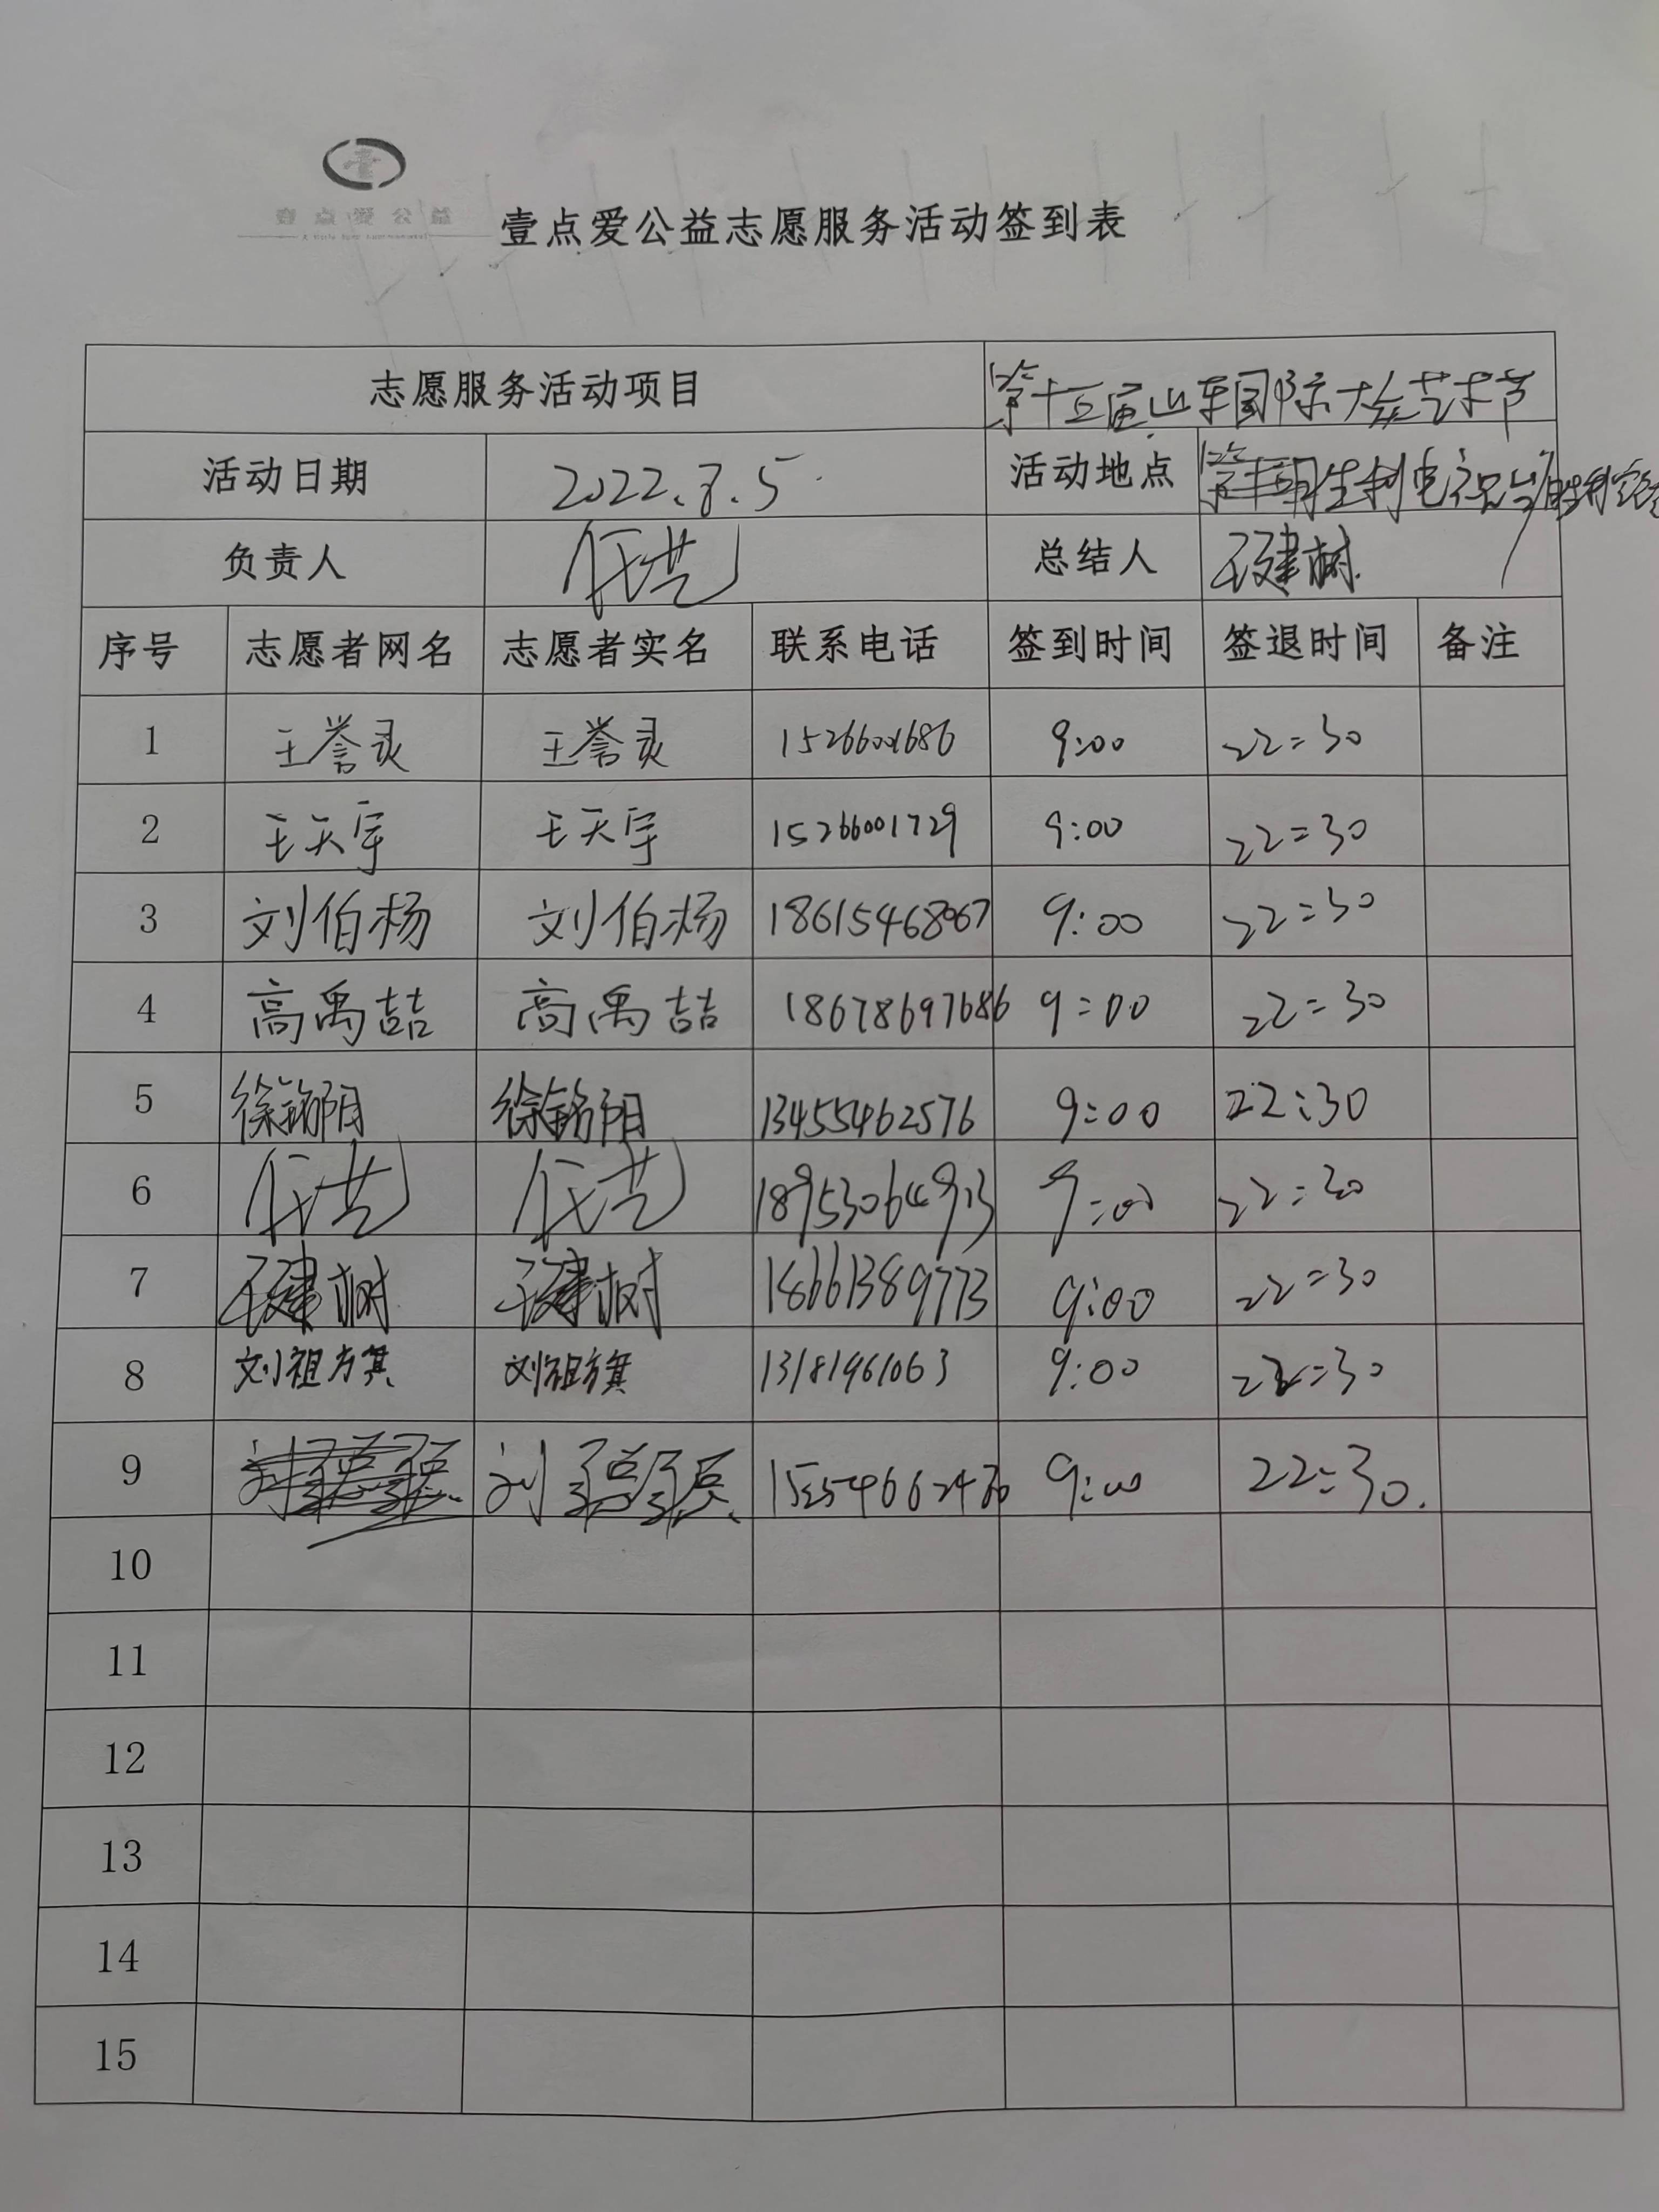 壹点爱公益
壹点爱公益志愿服务活动签到表
志愿服务活动项目 第十五届山东国际大众艺术节
活动日期 2022.8.5 活动地点 电视台
负责人 任艺 总结人 王建树
序号 志愿者网名 志愿者实名 联系电话 签到时间 签退时间 备注
1 王誉灵 王誉灵 15266001686 9:00 22:30
2 王天宇 王天宇 15266001729 9:00 22:30
3 刘伯杨 刘伯杨 18615468067 9:00 22:30
4 高禹喆 高禹喆 18678697686 9:00 22:30
5 徐铭阳 徐铭阳 13455462576 9:00 22:30
6 任艺 任艺 18953064913 9:00 22:30
7 王建树 王建树 18661389773 9:00 22:30
8 刘祖方箕 刘祖方箕 13181961063 9:00 22:30
9 刘 9:00 22:30.
10
11
12
13
14
15